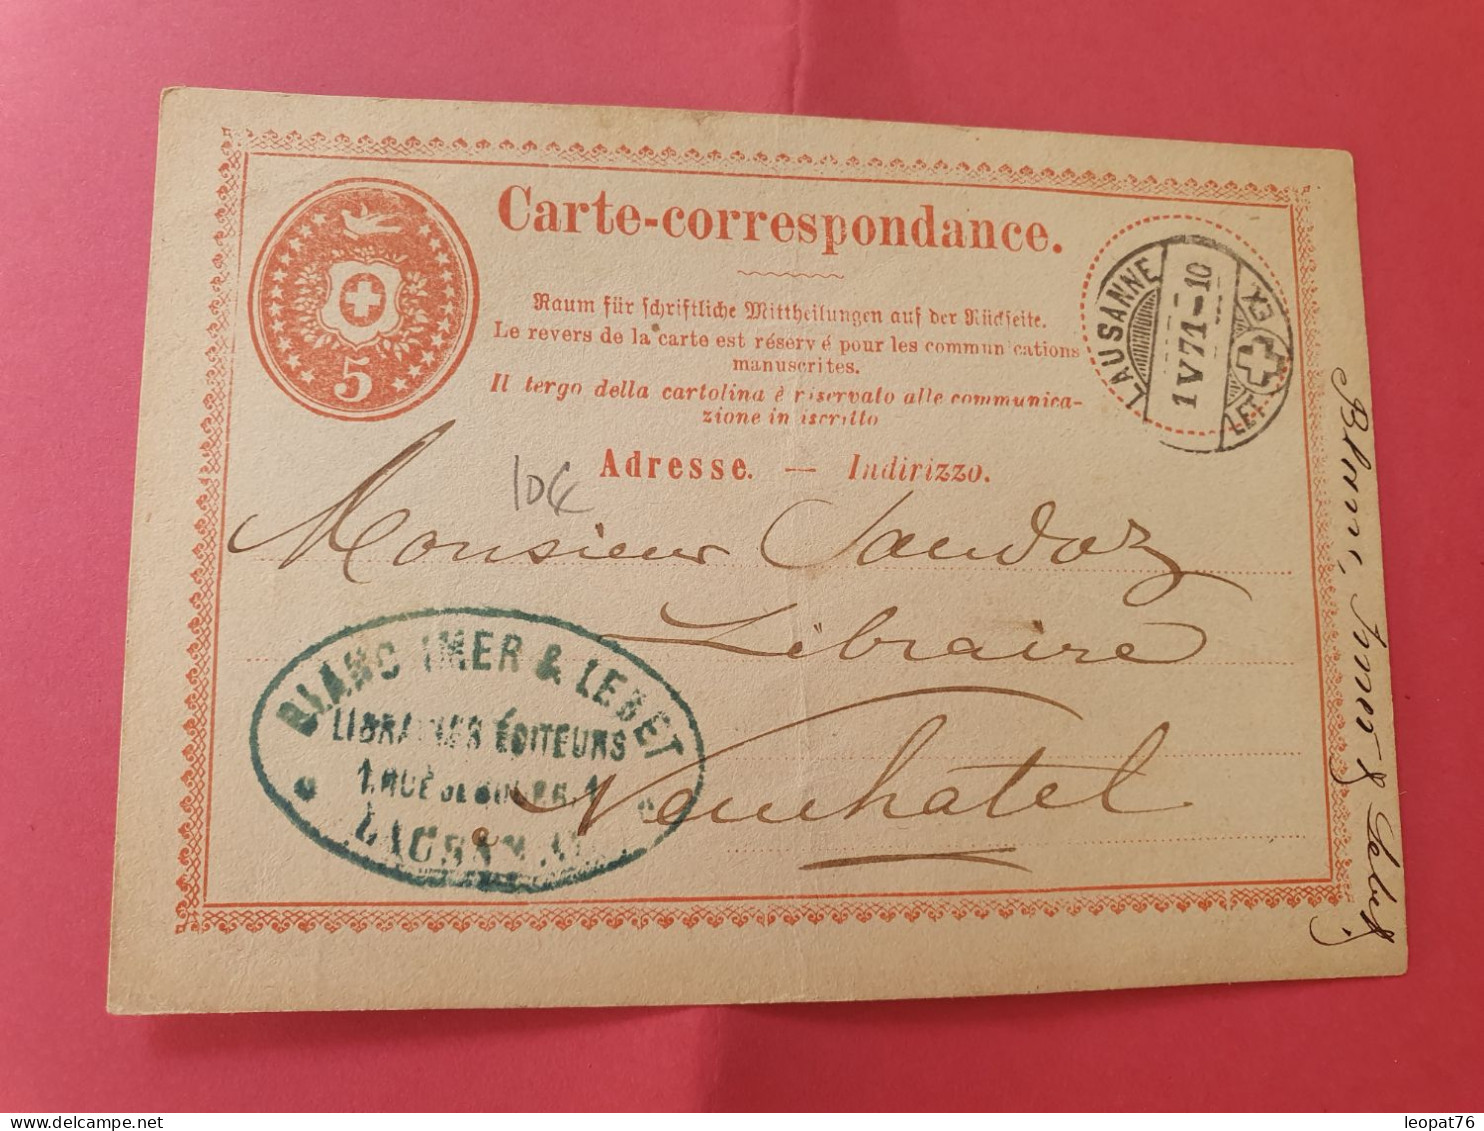 Carte-correspondance.
Raum für schriftliche Mittheilungen auf der Rückseite.
Le revers de la carte est réservé pour les communications
manuscrites.
Il tergo della cartolina è riservato alle communica-
zione in iscritto
Adresse. — Indirizzo.
5
LAUSANNE
1 V 71-10
EX
LET
10€
Monsieur Sandoz
Libraire
Neuchatel
BLANC IMER & LEBET
LIBRAIRES ÉDITEURS
LAUSANNE
Blanc, Imer & Lebet
delcampe.net
leopat76